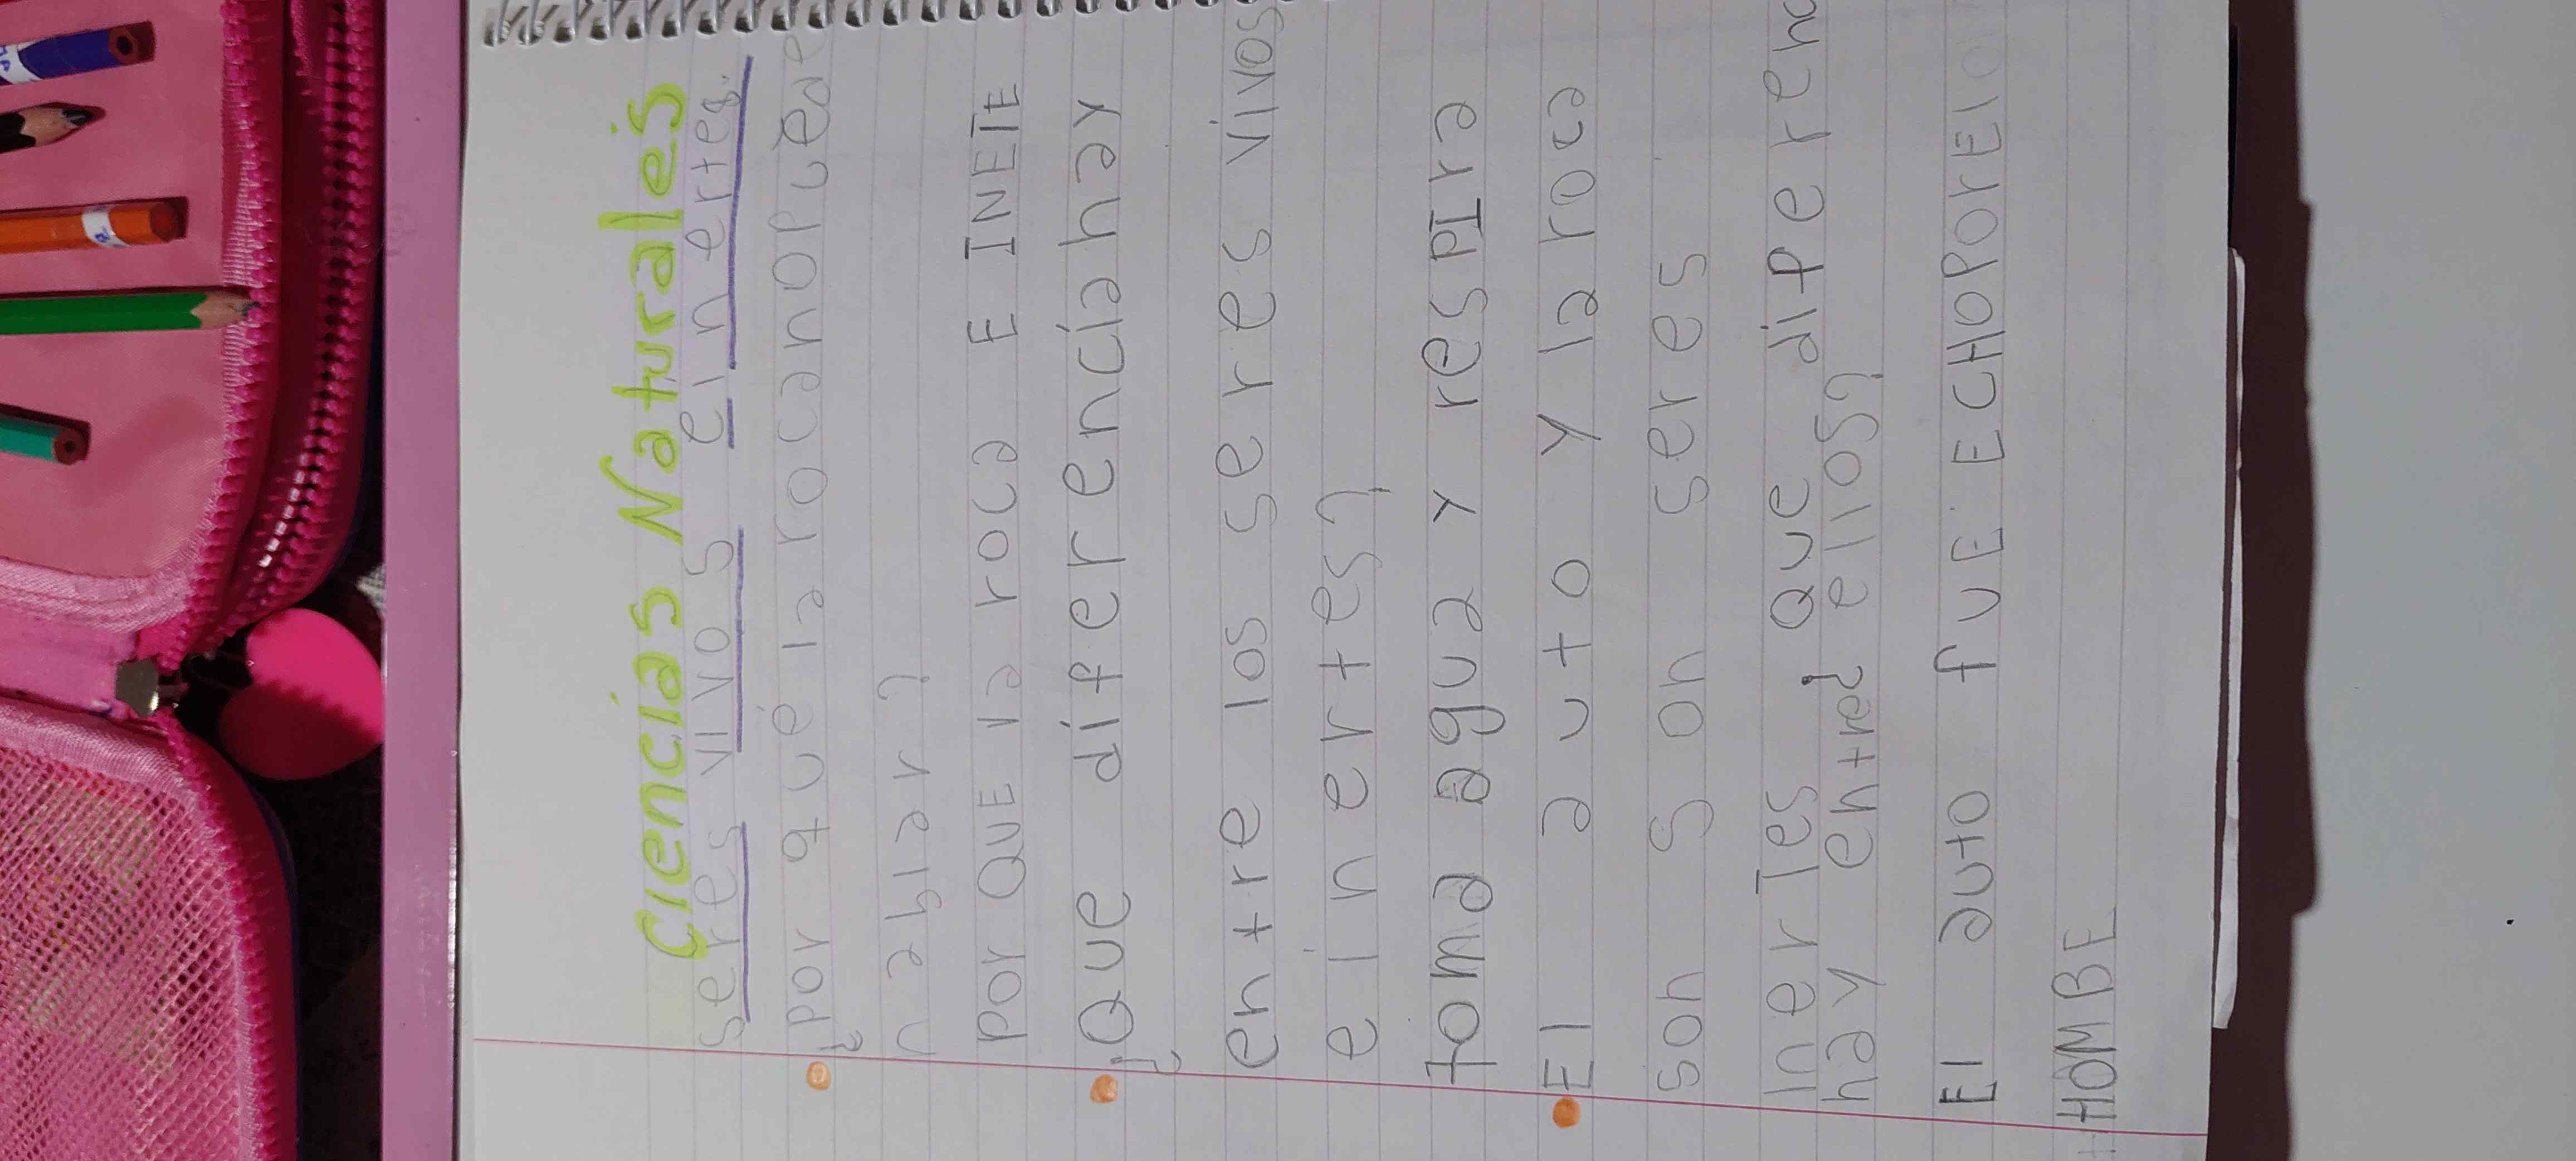 Ciencias Naturales
seres vivos e inertes.
¿por qué la roca no puede
hablar?
POR QUE la roca E INETE
¿Que diferencia hay
entre los seres vivos
e inertes?
toma agua y resPIra
El auto y la roca
son son seres
InerTes ¿Que diferen
hay entre ellos?
El auto fUE ECHO POR El
HOMBE